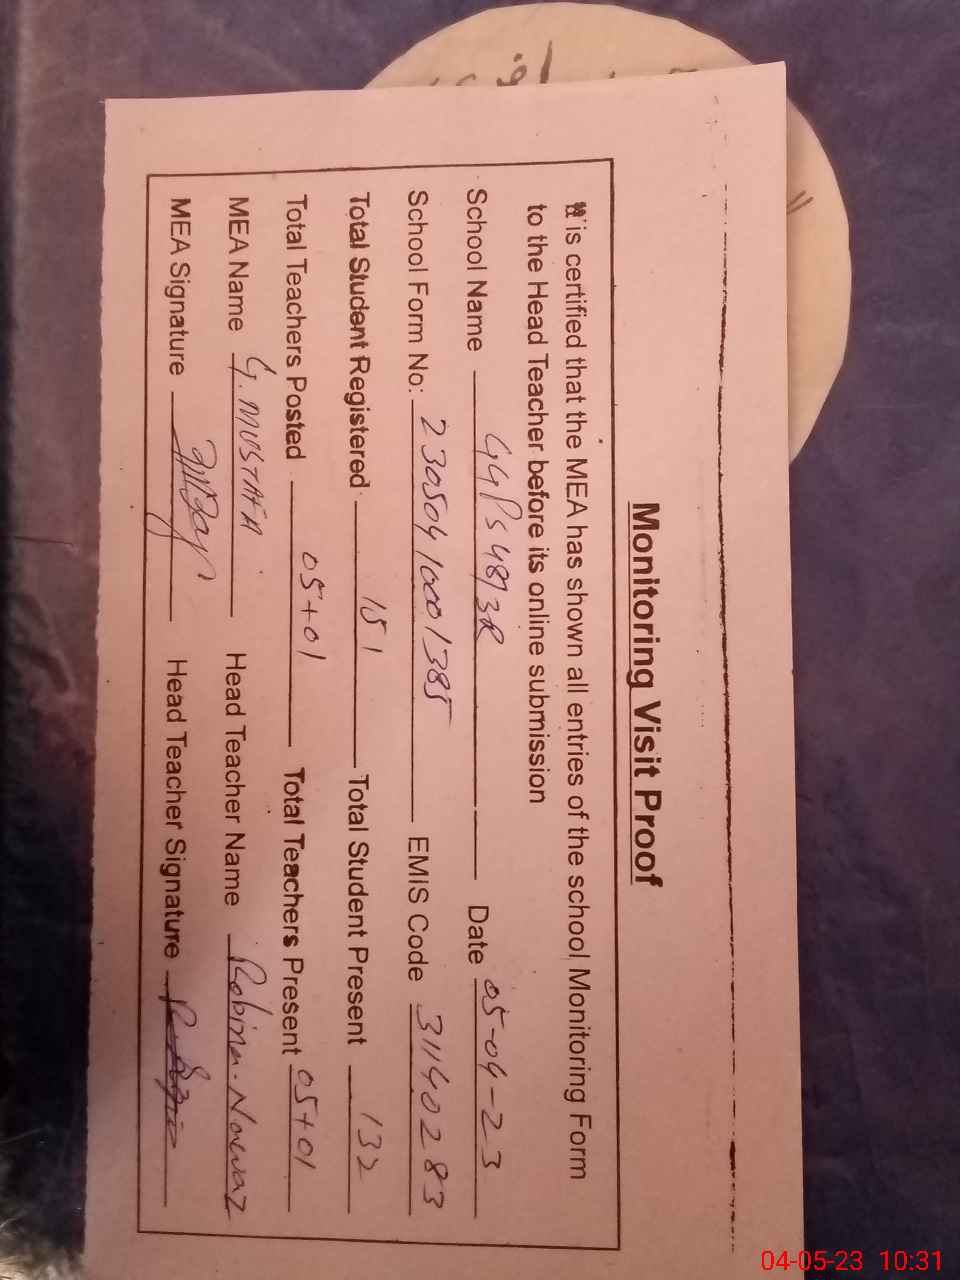 Monitoring Visit Proof
is certified that the MEA has shown all entries of the school Monitoring Form
to the Head Teacher before its online submission
School Name GGPS 48/3R Date 05-04-23
School Form No: 23050410001385 EMIS Code 31140283
Total Student Registered 151 Total Student Present 132
Total Teachers Posted 05+01 Total Teachers Present 05+01
MEA Name G. MUSTAFA Head Teacher Name Robina Nawaz
MEA Signature Head Teacher Signature
04-05-23 10:31